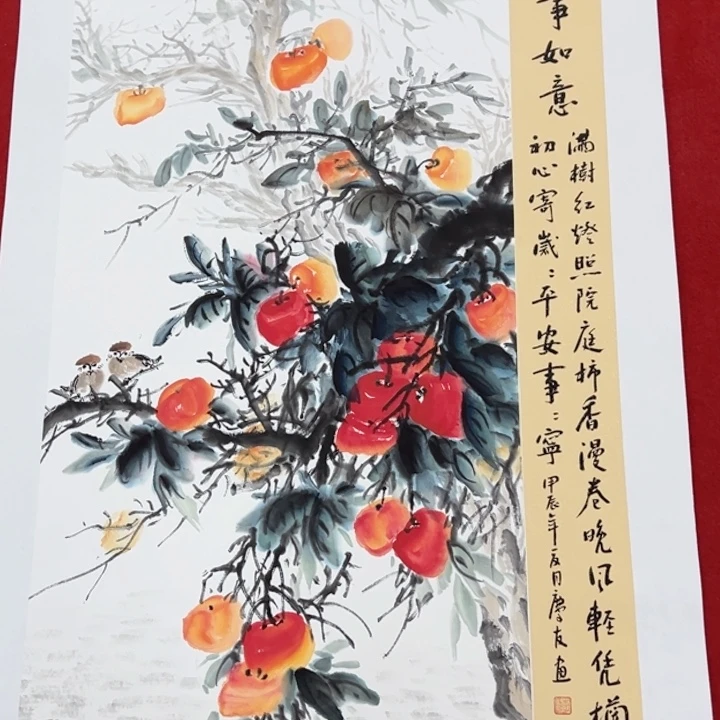 事如意
滿樹紅燈照院庭柿香漫卷晚风輕凭
初心寄歲々平安事々寧
甲辰年夏月慶友画